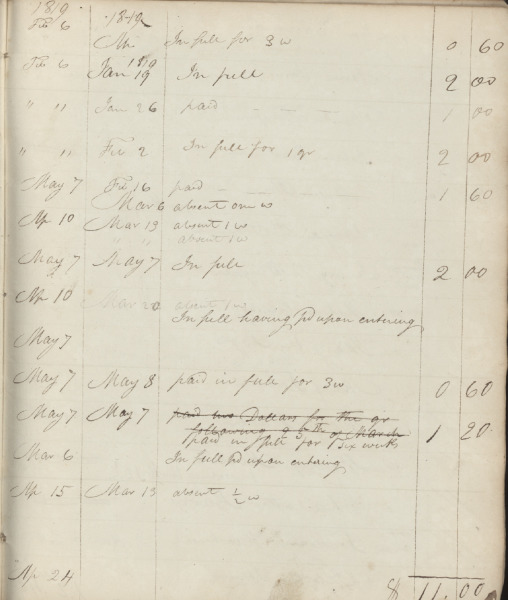 1819. 1819
Feb 6 Ap. In full for 3 w 0 60
Feb 6 Jan 19 In full 2 00
" " Jan 26 paid 1 00
" " Feb 2 In full for 1 qr 2 00
May 7 Feb 16 paid 1 60
Mar 6 absent one w
Ap 10 Mar 13 absent 1 w
" " absent 1 w
May 7 May 7 In full 2 00
Ap 10 Mar 20 absent 1 w
In full having pd upon entering
May 7
May 7 May 8 paid in full for 3 w 0 60
May 7 May 7 paid two Dollars for the qr
following 9th of March 1 20
paid in full for six weeks
Mar 6 In full pd upon entering
Ap 15 Mar 13 absent ½ w
Ap 24 $ 11.00